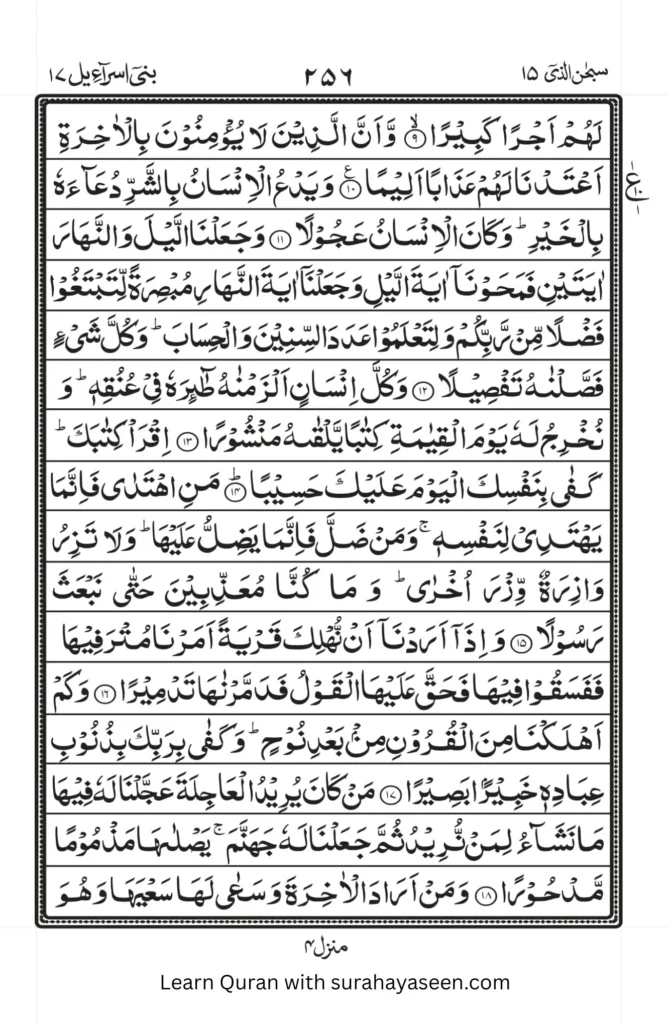 سبحٰن الذیٓ ١٥
٢٥٦
بنیٓ اسرآءیل ١٧
لَهُمْ اَجْرًا كَبِيْرًا ۙ‏﴿۹﴾ وَّاَنَّ الَّذِيْنَ لَا يُؤْمِنُوْنَ بِالْاٰخِرَةِ
اَعْتَدْنَا لَهُمْ عَذَابًا اَلِيْمًا ﴿۱۰﴾ؑ وَيَدْعُ الْاِنْسَانُ بِالشَّرِّ دُعَآءَهٗ
ع ١٠ ١
بِالْخَيْرِ ؕ وَكَانَ الْاِنْسَانُ عَجُوْلًا ﴿۱۱﴾ وَجَعَلْنَا الَّيْلَ وَالنَّهَارَ
اٰيَتَيْنِ فَمَحَوْنَاۤ اٰيَةَ الَّيْلِ وَجَعَلْنَاۤ اٰيَةَ النَّهَارِ مُبْصِرَةً لِّتَبْتَغُوْا
فَضْلًا مِّنْ رَّبِّكُمْ وَلِتَعْلَمُوْا عَدَدَ السِّنِيْنَ وَالْحِسَابَ ؕ وَكُلَّ شَىْءٍ
فَصَّلْنٰهُ تَفْصِيْلًا ﴿۱۲﴾ وَكُلَّ اِنْسَانٍ اَلْزَمْنٰهُ طٰٓئِرَهٗ فِىْ عُنُقِهٖ ؕ وَ
نُخْرِجُ لَهٗ يَوْمَ الْقِيٰمَةِ كِتٰبًا يَّلْقٰٮهُ مَنْشُوْرًا ﴿۱۳﴾ اِقْرَاْ كِتٰبَكَ ؕ
كَفٰى بِنَفْسِكَ الْيَوْمَ عَلَيْكَ حَسِيْبًا ؕ‏﴿۱۴﴾ مَنِ اهْتَدٰى فَاِنَّمَا
يَهْتَدِىْ لِنَفْسِهٖ ۚ وَمَنْ ضَلَّ فَاِنَّمَا يَضِلُّ عَلَيْهَا ؕ وَلَا تَزِرُ
وَازِرَةٌ وِّزْرَ اُخْرٰى ؕ وَمَا كُنَّا مُعَذِّبِيْنَ حَتّٰى نَبْعَثَ
رَسُوْلًا ﴿۱۵﴾ وَاِذَاۤ اَرَدْنَاۤ اَنْ نُّهْلِكَ قَرْيَةً اَمَرْنَا مُتْرَفِيْهَا
فَفَسَقُوْا فِيْهَا فَحَقَّ عَلَيْهَا الْقَوْلُ فَدَمَّرْنٰهَا تَدْمِيْرًا ﴿۱۶﴾ وَكَمْ
اَهْلَكْنَا مِنَ الْقُرُوْنِ مِنْۢ بَعْدِ نُوْحٍ ؕ وَكَفٰى بِرَبِّكَ بِذُنُوْبِ
عِبَادِهٖ خَبِيْرًۢا بَصِيْرًا ﴿۱۷﴾ مَنْ كَانَ يُرِيْدُ الْعَاجِلَةَ عَجَّلْنَا لَهٗ فِيْهَا
مَا نَشَآءُ لِمَنْ نُّرِيْدُ ثُمَّ جَعَلْنَا لَهٗ جَهَنَّمَ ۚ يَصْلٰٮهَا مَذْمُوْمًا
مَّدْحُوْرًا ﴿۱۸﴾ وَمَنْ اَرَادَ الْاٰخِرَةَ وَسَعٰى لَهَا سَعْيَهَا وَهُوَ
منزل ۴
Learn Quran with surahayaseen.com